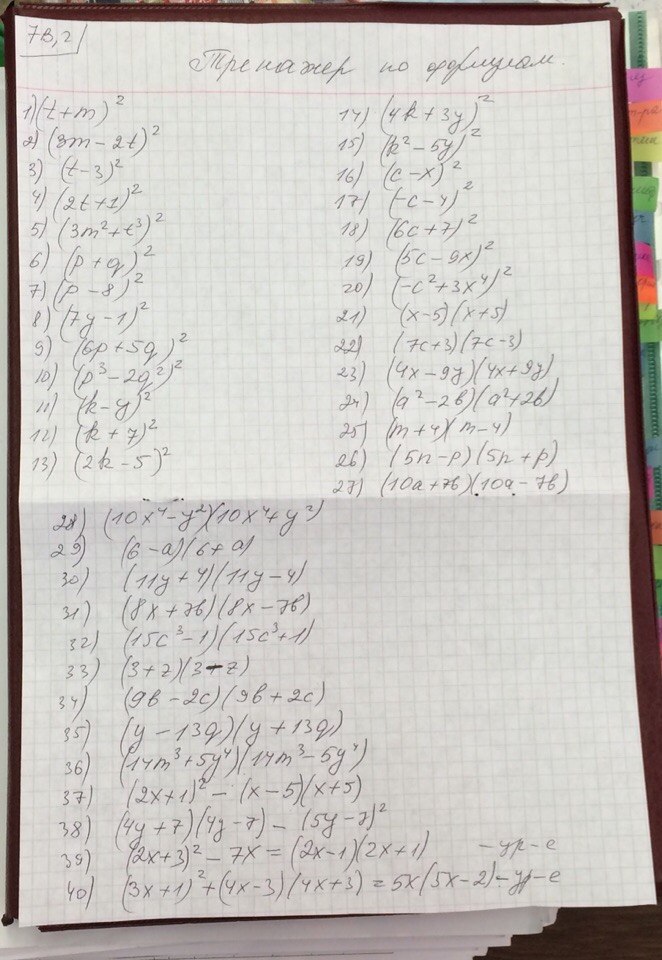 7В,2
Тренажер по формулам.
1) (t+m)²
2) (3m-2t)²
3) (t-3)²
4) (2t+1)²
5) (3m²+t³)²
6) (p+q)²
7) (p-8)²
8) (7y-1)²
9) (6p+5q)²
10) (p³-2q²)²
11) (k-y)²
12) (k+7)²
13) (2k-5)²
14) (4k+3y)²
15) (k²-5y)²
16) (c-x)²
17) (-c-4)²
18) (6c+7)²
19) (5c-9x)²
20) (-c²+3x⁴)²
21) (x-5)(x+5)
22) (7c+3)(7c-3)
23) (4x-9y)(4x+9y)
24) (a²-2b)(a²+2b)
25) (m+4)(m-4)
26) (5n-p)(5n+p)
27) (10a+7b)(10a-7b)
28) (10x⁴-y²)(10x⁴+y²)
29) (6-a)(6+a)
30) (11y+4)(11y-4)
31) (8x+7b)(8x-7b)
32) (15c³-1)(15c³+1)
33) (3+z)(3-z)
34) (9b-2c)(9b+2c)
35) (y-13q)(y+13q)
36) (14m³+5y⁴)(14m³-5y⁴)
37) (2x+1)² - (x-5)(x+5)
38) (4y+7)(4y-7) - (5y-7)²
39) (2x+3)² - 7x = (2x-1)(2x+1) - ур-е
40) (3x+1)² + (4x-3)(4x+3) = 5x(5x-2) - ур-е